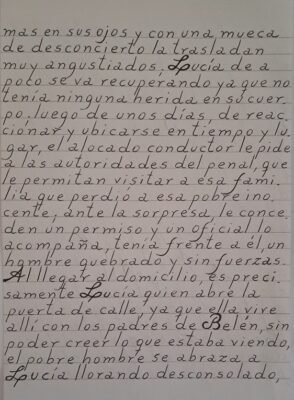 mas en sus ojos y con una mueca
de desconcierto la trasladan
muy angustiados. Lucía de a
poto se va recuperando ya que no
tenía ninguna herida en su cuer-
po, luego de unos días, de reac-
cionar y ubicarse en tiempo y lu-
gar, el alocado conductor le pide
a las autoridades del penal, que
le permitan visitar a esa fami-
lia que perdió a esa pobre ino-
cente, ante la sorpresa, le conce-
den un permiso y un oficial lo
acompaña, tenía frente a él, un
hombre quebrado y sin fuerzas.
Al llegar al domicilio, es preci-
samente Lucía quien abre la
puerta de calle, ya que ella vive
allí con los padres de Belén, sin
poder creer lo que estaba viendo,
el pobre hombre se abraza, a
Lucía llorando desconsolado,